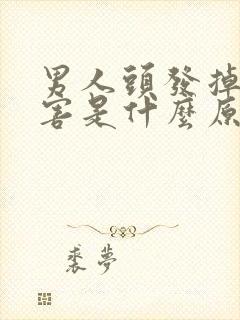 男人頭發掉
害是什麼原
裘夢